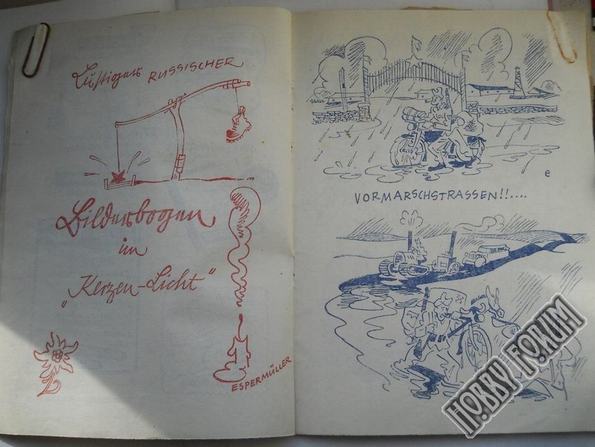 Lustiger RUSSISCHER
Bilderbogen
im
„Kerzen-Licht"
ESPERMÜLLER
e
VORMARSCHSTRASSEN!!....
HOBBY FORUM